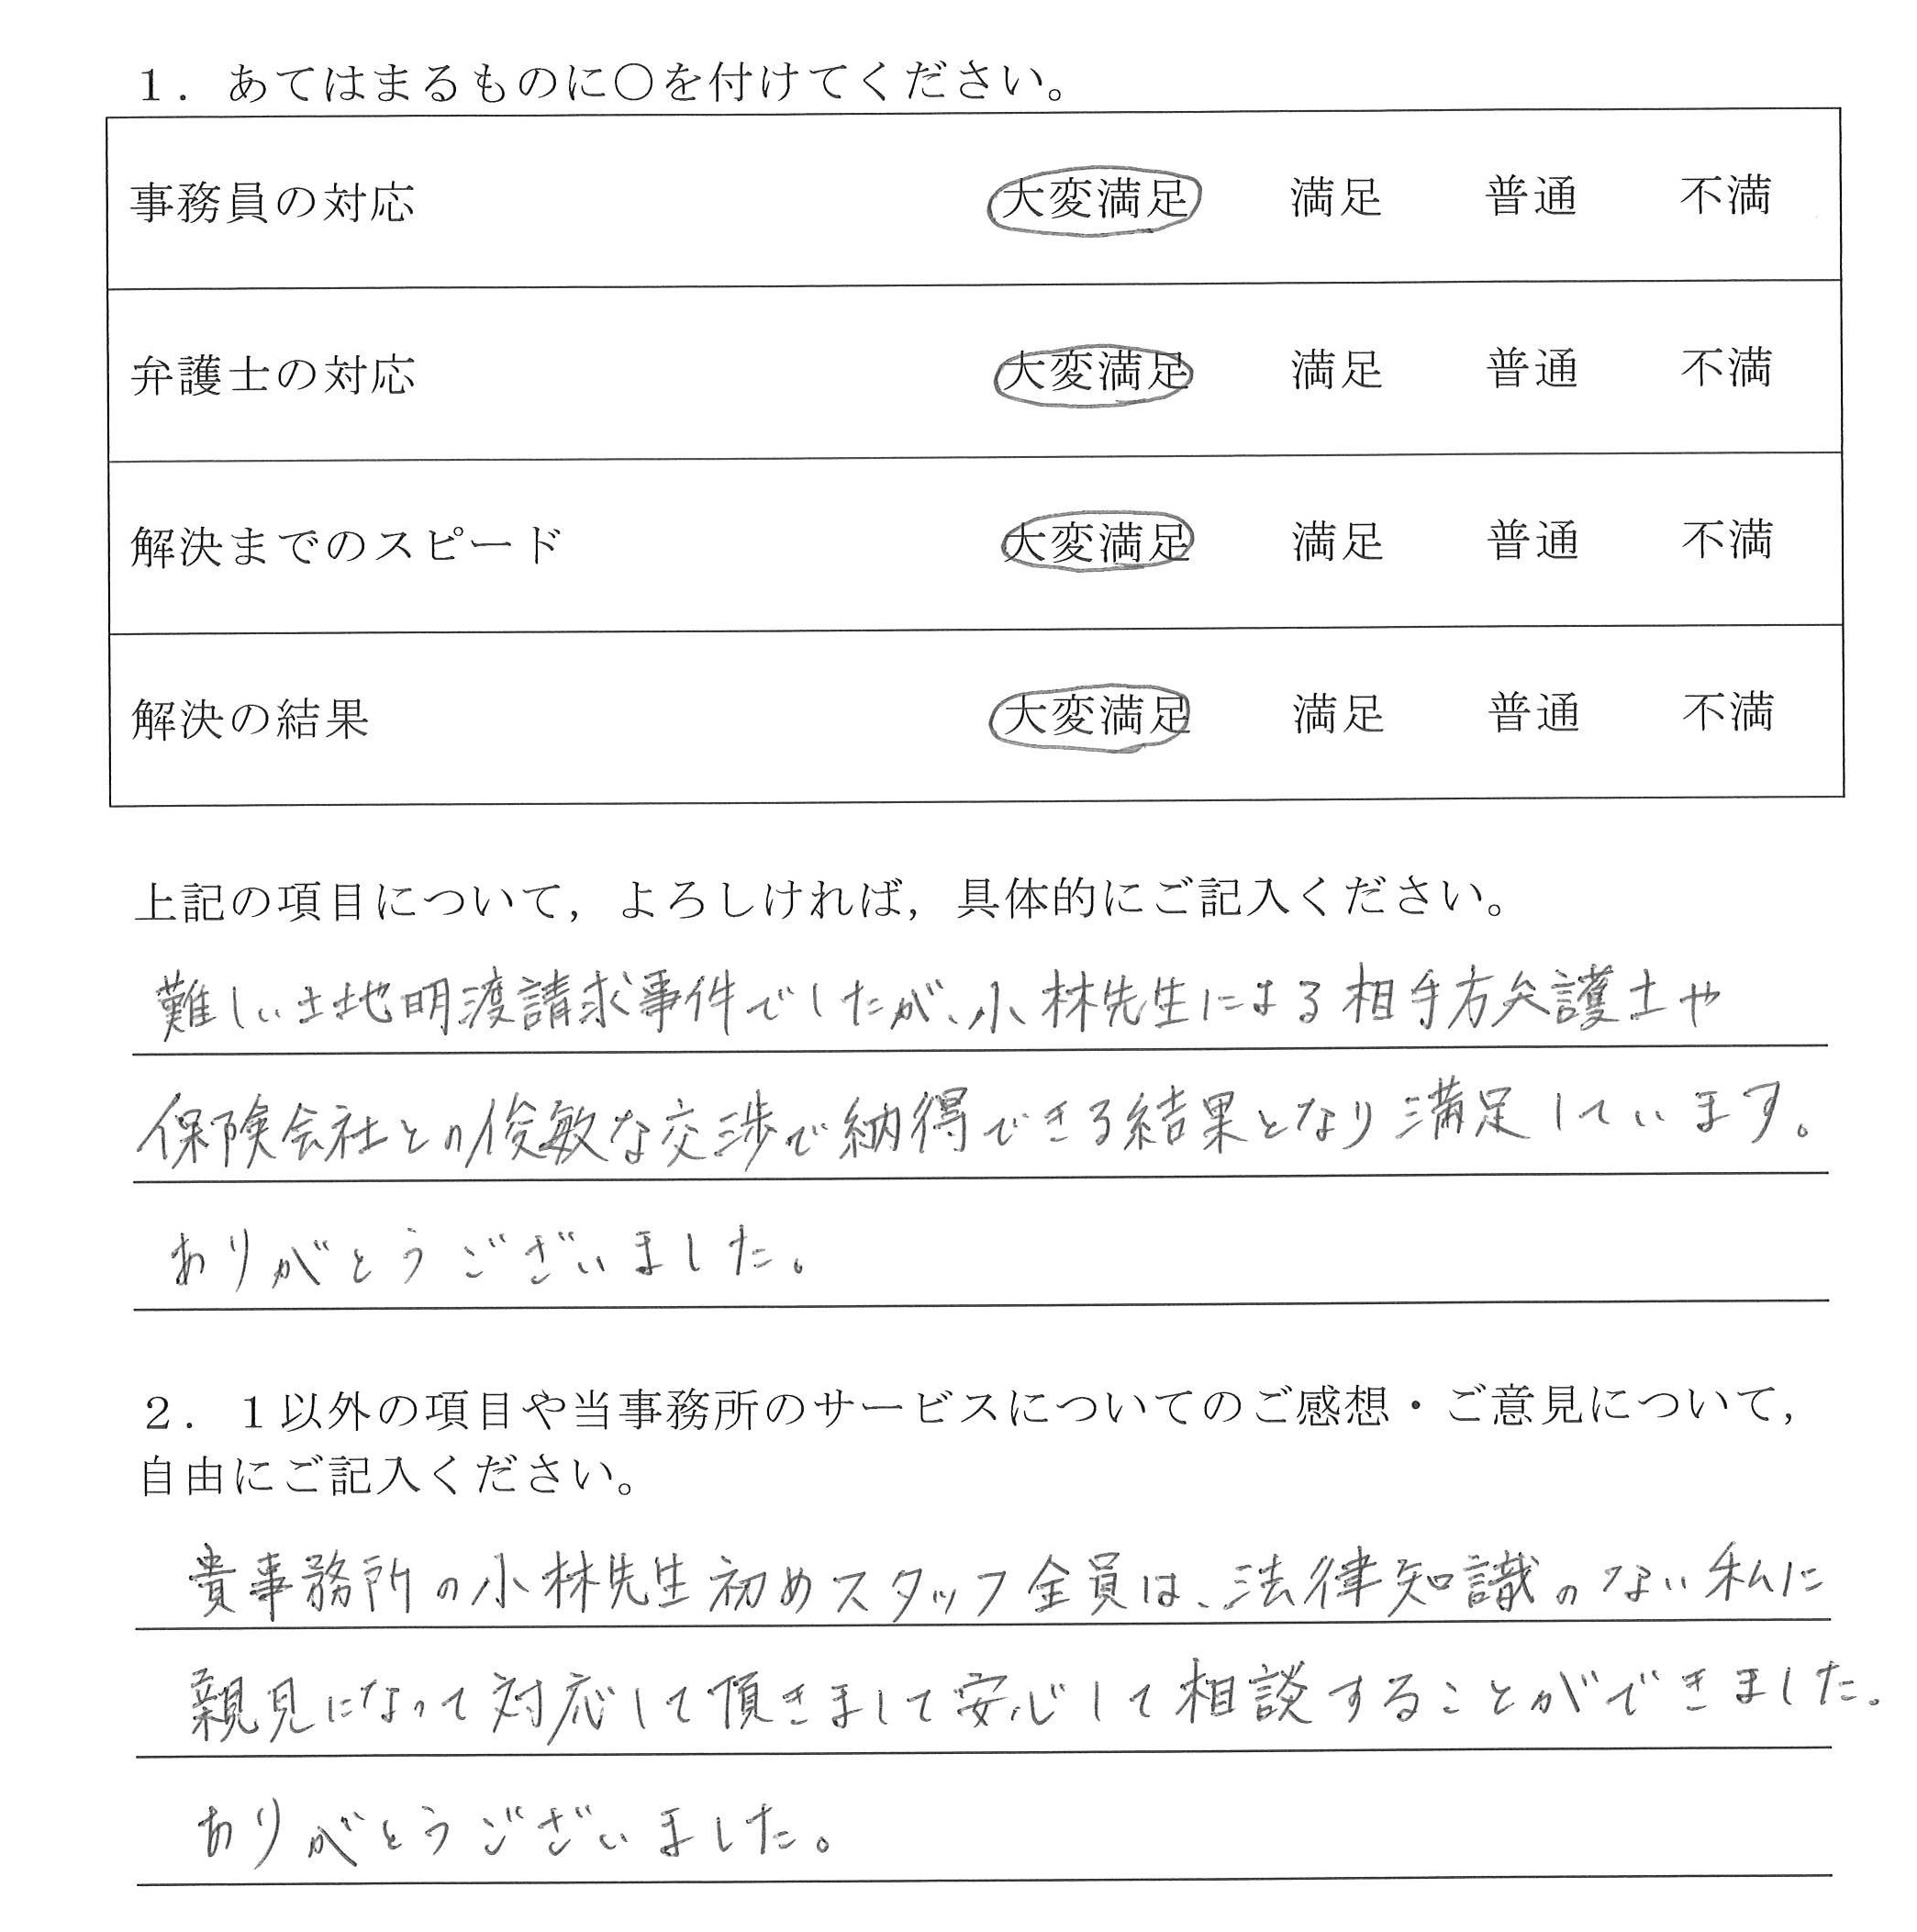 １．あてはまるものに○を付けてください。
事務員の対応 大変満足 満足 普通 不満
弁護士の対応 大変満足 満足 普通 不満
解決までのスピード 大変満足 満足 普通 不満
解決の結果 大変満足 満足 普通 不満
上記の項目について，よろしければ，具体的にご記入ください。
難しい土地明渡請求事件でしたが、小林先生による相手方弁護士や
保険会社との俊敏な交渉で納得できる結果となり満足しています。
ありがとうございました。
２．１以外の項目や当事務所のサービスについてのご感想・ご意見について，
自由にご記入ください。
貴事務所の小林先生初めスタッフ全員は、法律知識のない私に
親見になって対応して頂きまして安心して相談することができました。
ありがとうございました。